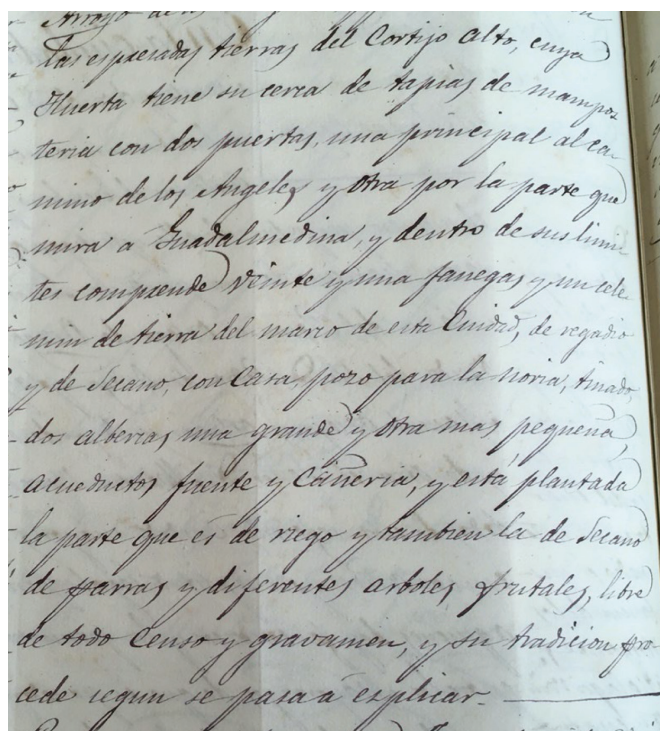 Arroyo de los
las espresadas tierras del Cortijo Alto, cuya
Huerta tiene su cerca de tapias de mampos-
teria con dos puertas, una principal al ca-
mino de los Angeles y otra por la parte que
mira á Guadalmedina, y dentro de sus limi-
tes comprende veinte y una fanegas y un cele-
min de tierra del marco de esta Ciudad, de regadio
y de Secano, con Casa, pozo para la noria, tinado,
dos albercas, una grande y otra mas pequeña,
acueductos fuente y Cañeria, y está plantada
la parte que es de riego y tambien la de Secano
de parras y diferentes arboles frutales, libre
de todo Censo y gravamen, y su tradicion pro-
cede segun se pasa á esplicar.